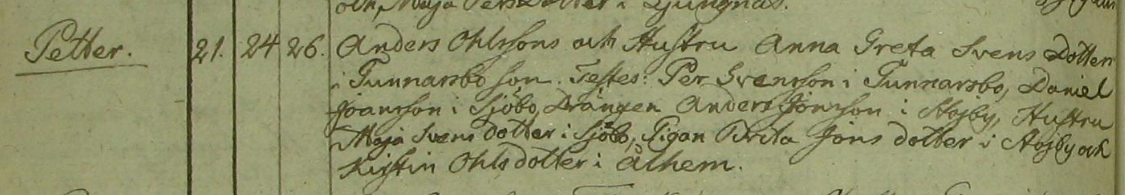 och Maja Persdotter i Ljungnäs.
Petter. 21. 24 26. Anders Ohlssons och Hustru Anna Greta Svens Dotter
i Gunnarsbo son. Testes: Per Svensson i Gunnarsbo, Daniel
Joansson i Sjöbo, Drängen Anders Jonsson i Högby, Hustru
Maja Svens dotter i Sjöbo, Pigan Brita Jons dotter i Högby och
Kirstin Ohlsdotter i Ålhem.